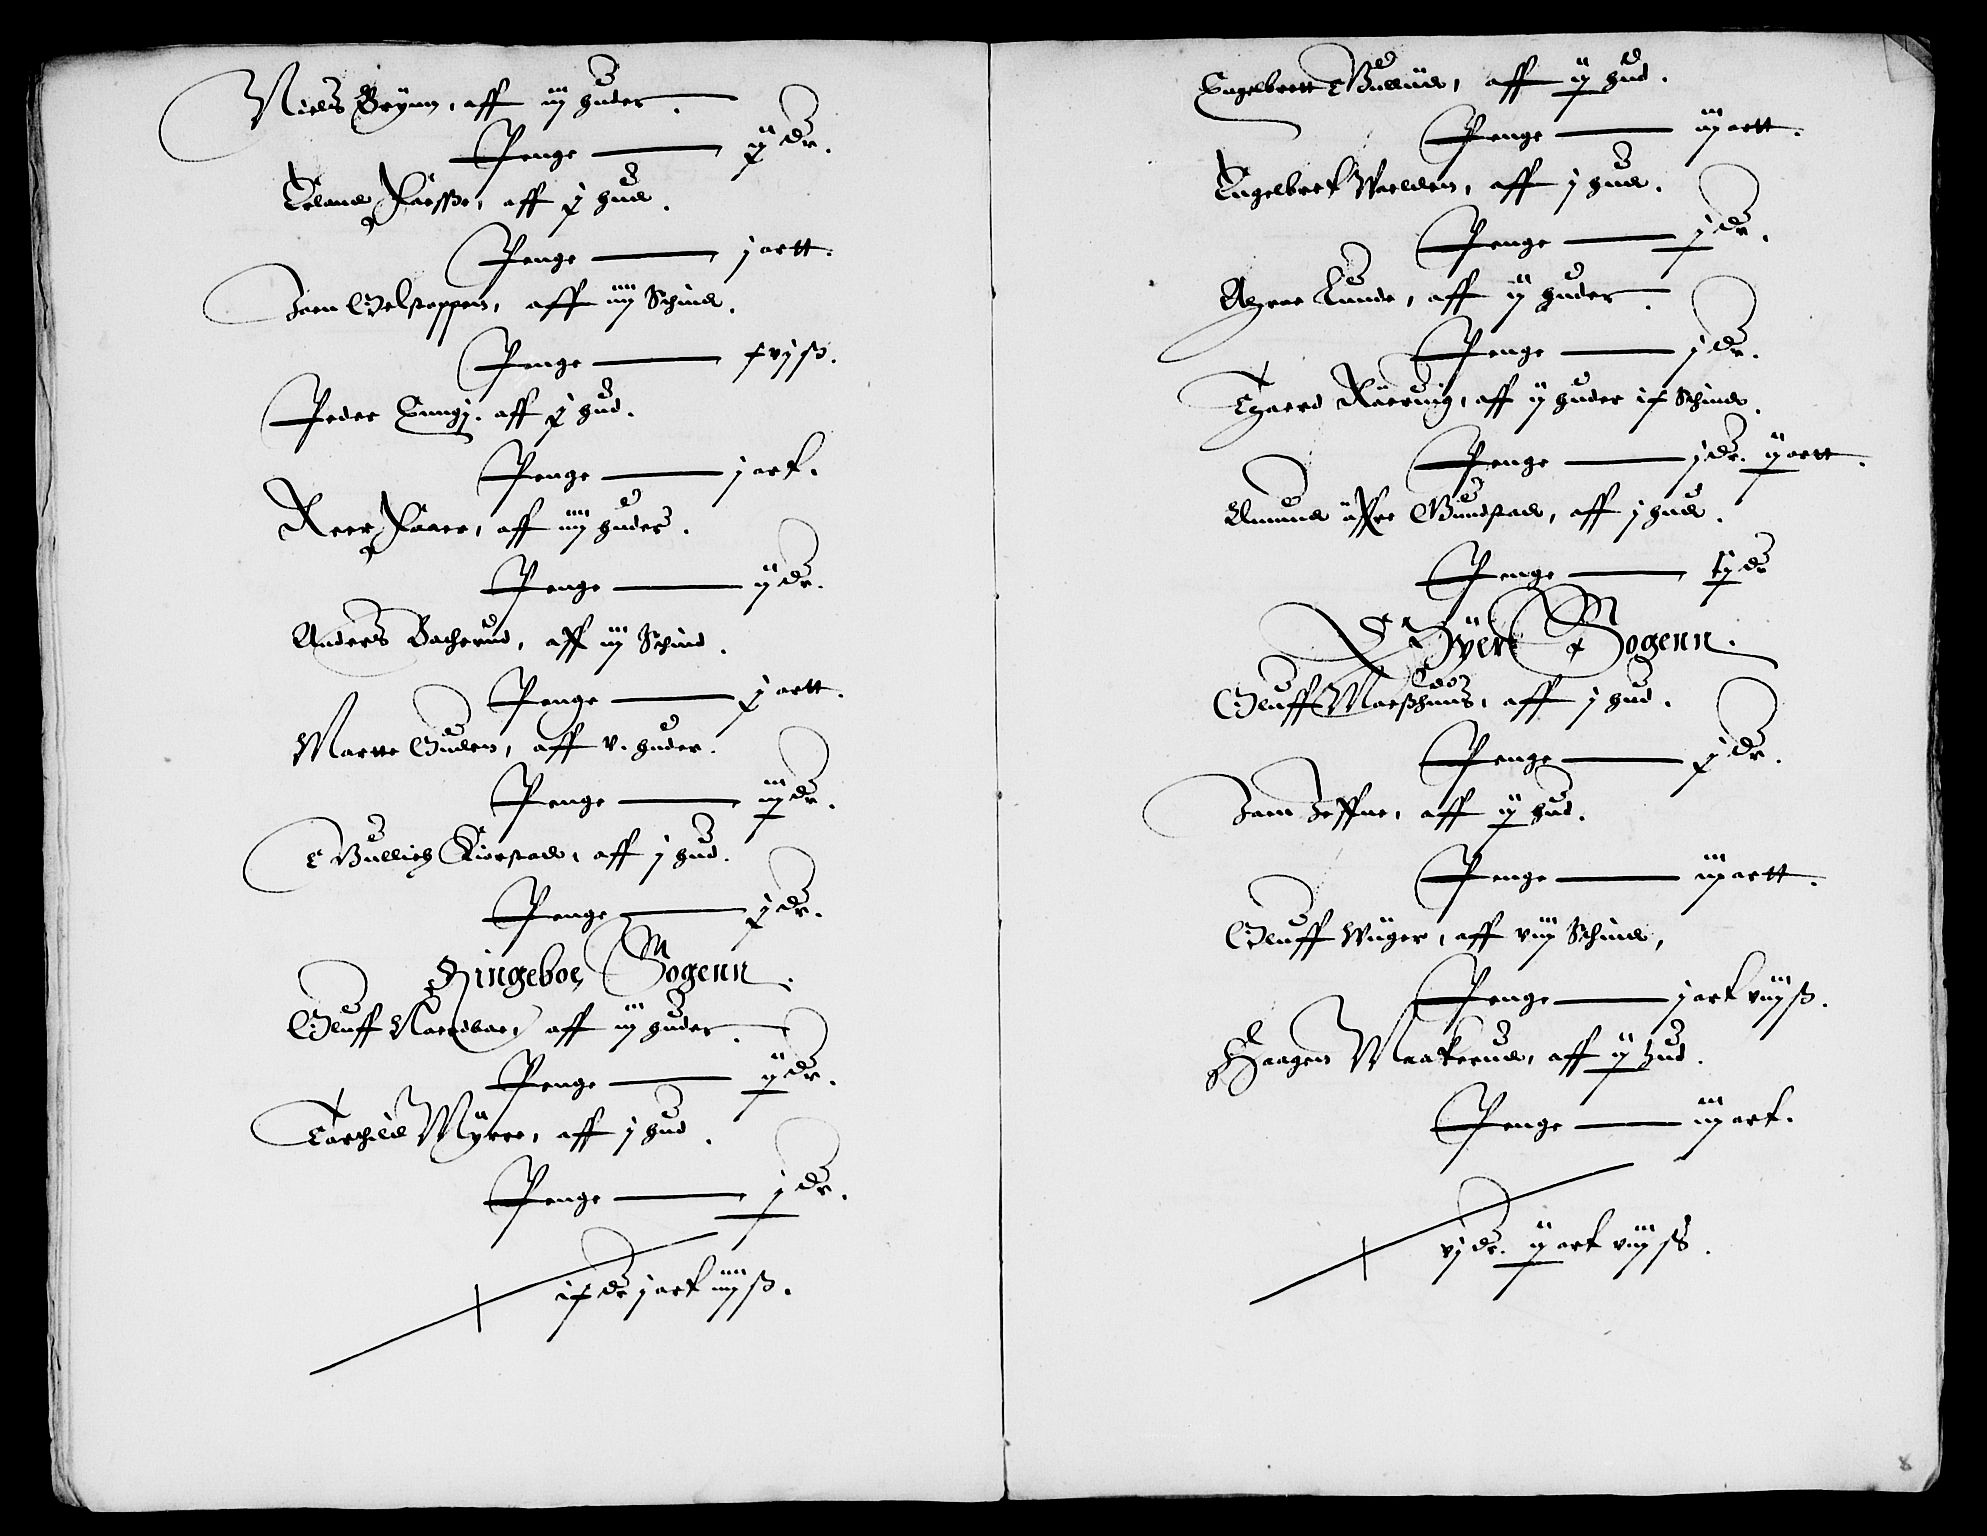 Niels Brynn, aff iij huder.
Penge ij dr.
Erland Kaesse, aff j hud.
Penge j ortt.
Joen Belstoppen, aff iiij Schind.
Penge xvj ß.
Peder Eungj. aff j hud.
Penge j ort.
Reer Kaaer, aff iiij huder.
Penge ij dr.
Anders Bacherud, aff iij Schind.
Penge j ortt.
Marte Guden, aff v. huder.
Penge iij dr.
Gullich Kiorstad, aff j hud.
Penge j dr.
Ringeboe Sogenn.
Oluff Nordbae, aff iij huder.
Penge ij dr.
Torchild Myrre, aff j hud.
Penge j dr.
ix dr j ort iiij ß.
Engelbrett Gullud, aff ij hud.
Penge iij ortt.
Engelbret Woelden, aff j hud.
Penge j dr.
Agrae Lunde, aff ij huder.
Penge j dr.
Thaard Raervig, aff ij huder ix Schind.
Penge j dr. ij ortt.
Amund öffre Gundstad, aff j hud.
Penge j dr
Øyer Sogenn.
Oluff Moeshuus, aff j hud.
Penge j dr.
Joen Jeffne, aff ij hud.
Penge iij ortt.
Oluff Wiiger, aff viij Schind,
Penge j ort viij ß.
Haagen Maakerud, aff ij hud.
Penge iij ort.
vj dr. ij ort viij ß.
8